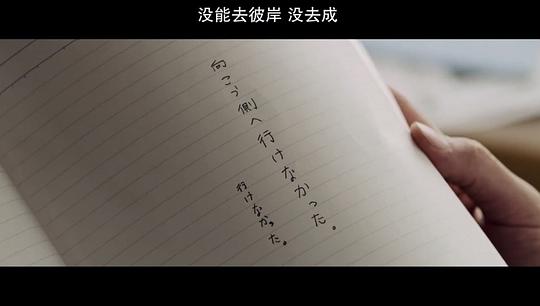 没能去彼岸 没去成
向こう側へ行けなかった。
行けなかった。